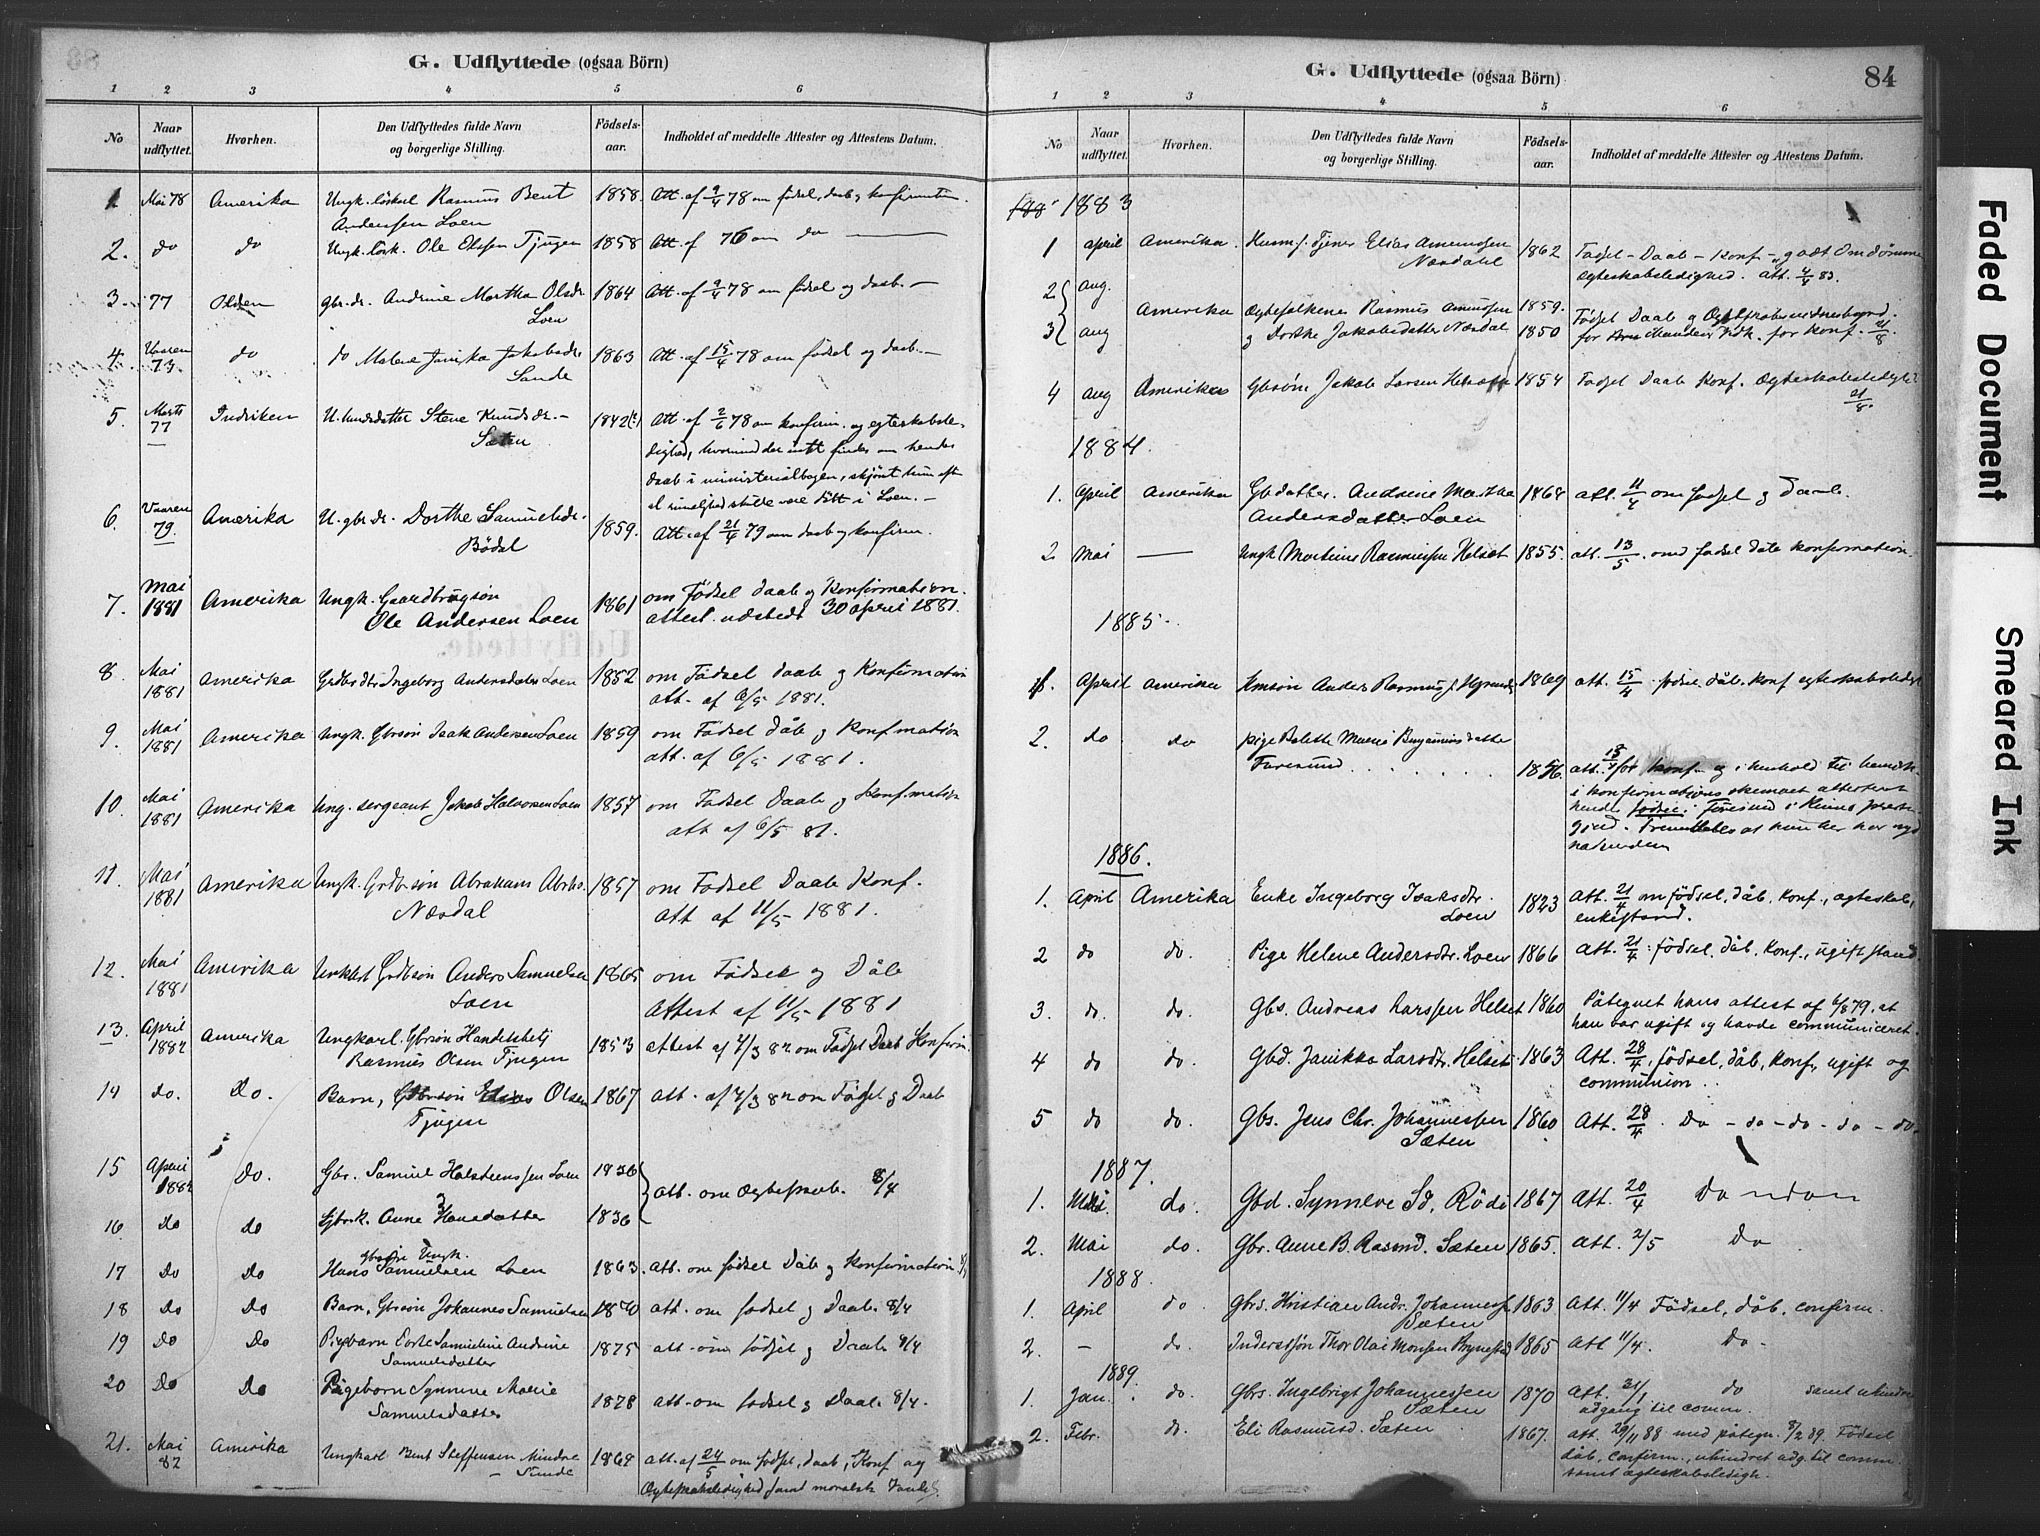 G. Udflyttede (ogsaa Börn)
1 2 3 4 5 6
No
Naar udflyttet.
Hvorhen.
Den Udflyttedes fulde Navn og borgerlige Stilling.
Födsels-aar.
Indholdet af meddelte Attester og Attestens Datum.
1 Mai 78 Amerika Ungk. Rasmus Bent 1858 Att. af 9/4 78 om födsel, daab og konfirmation.
Anderssen Loen
2. do do Ungk. Ole Olssen Tjugen 1858 Att. af 76 om do
3. 77 Olden gbr.dr. Andrine Martha Olsdr. 1864 Att. af 9/4 78 om födsel og daab. —
Loen
4. Vaaren 73 do do Malene Janika Jakobsdr. 1863 Att. af 15/4 78 om födsel og daab. —
Sande
5. Marts 77 Indviken Stene Knudsdr. — 1842 Att. af 2/6 78 om konfirm. og egteskabsle-
Sæten dighed, hvorimod der intt findes om hendes
daab i ministerialbogen, skjönt hun eft
al rimelighed skulde være fött i Loen. —
6. Vaaren 79. Amerika U. gbr.dr. Dorthe Samuelsdr. 1859. Att. af 21/4 79 om daab og konfirm.
Bödal
7. Mai 1881 Amerika Ungk. Gaardbrugsön 1861 om Födsel Daab og Konfirmation.
Ole Andersen Loen attest. udstedt 30 april 1881.
8. Mai 1881 Amerika Ingeborg Andersdatter Loen 1852 om Födsel Daab og Konfirmation
att. af 6/5 1881.
9. Mai 1881 Amerika Ungk. Gbrsön Isak Andersen Loen 1859 om Födsel Dåb og Konfirmation
att. af 6/5 1881.
10. Mai 1881 Amerika Ung. sergeant Jakob Halvorsen Loen 1857 om Födsel Daab og Konfirmation
att af 6/5 81.
11. Mai 1881 Amerika Ungk. Grdbrsön Abraham Abrhs. 1857 om Födsel Daab Konf.
Næsdal att af 11/5 1881.
12. Mai 1881 Amerika Grdbrsön Anders Samuelsen 1865 om Födsel og Dåb
Loen Attest af 11/5 1881
13. April 1882 Amerika Ungkarl. Gbrsön Handelsbetj 1853 attest af 4/3 82 om Födsel Daab Konfirm.
Rasmus Olsen Tjugen
14 do. Do. Barn, Gbrsön Olsen 1867 att. af 4/3 82 om Födsel og Daab
Tjugen
15 April 1882 Do. Gbr. Samuel Holsteenssen Loen 1836 att. om Ægteskab. 8/4
16 Do Do Gbr.k. Anne Hansdatter 1836
gbrsön Ungk.
17 Do Do Hans Samuelsen Loen 1863. att. om födsel Dåb og Konfirmation
18 Do Do Barn, Gbrsön Johannes Samuelsen 1870 att. om födsel og Daab 8/4
19 Do Do Pigbarn Samueline Andrine 1875 att. om födsel og Daab 8/4
Samuelsdatter
20 Do Do Pigebarn Synnine Marie 1878 att. om födsel og Daab 8/4.
Samuelsdatter
21. Mai 82 Amerika Ungkarl Bent Steffensen Mindre 1868 att. af 24/5 om Födsel, daab, Konf og
— Sunde Ægteskabsledighed samt moralsk
G. Udflyttede (ogsaa Börn)
84
1 2 3 4 5 6
No
Naar udflyttet.
Hvorhen.
Den Udflyttedes fulde Navn og borgerlige Stilling.
Födsels-aar.
Indholdet af meddelte Attester og Attestens Datum.
1883
1 april Amerika. Tjener Elias Amundsen 1862 Födsel - Daab - Konf - godt Omdömme
Næsdahl Ægteskabsledighed. att. 4/4 83.
2 aug. Amerika Ægtefolkene Rasmus Amundsen 1859. Födsel Daab og
3 aug og Dorthe Jakobsdatter Næsdal 1850 for Manden for Konf. 21/8.
4 aug Amerika Gbrsön Jakob Larsen Helset 1854 Födsel Daab Konf. Ægteskabsledighed
21/8.
1884.
1. April Amerika Gbdatter. Andrine Martha 1868 att. 11/4 om födsel og daab.
Andersdatter Loen
2. Mai — Ungk Martinus Rasmussen Helset 1855. att. 13/5 om födsel dåb konfirmation.
1885.
1. April Amerika Anders Rasmuss. 1869 att. 15/4 födsel dåb. konf egteskabsledigh
2. do do pige Marie Benjaminsdatter
Faresund . . . . . . 1856. att. for konf. og i henhold til
i konfirmationsskemaet attesteret
hendes födsel i
1886.
1. April Amerika Enke Ingeborg Isaksdtr. 1823 Att. 21/4 om födsel, dåb, konf., egteskab,
Loen enkestand.
2 do do. Pige Helene Andersdtr. Loen 1866 Att. 21/4. födsel, dåb, Konf., ugift stand.
3. do. do. Gbs. Andreas Larssen Helset 1860 Påtegnet hans attest af 6/8 79, at
han var ugift og havde communiceret.
4 do do. Gbd. Janikka Larsdtr. Helset 1863 Att. 28/4, födsel, dåb, konf., ugift og
communion.
5 do do. Gbs. Jens Chr. Johannessen 1860 Att. 28/4. Do - do - do - do - do.
Sæten
1887.
1. do. Gbd. Synneve Sd. Rödi 1867 Att. 20/4 Do
2. Mai do. Gbr. Anne B. Rasmd. Sæten 1865. Att. 2/5 Do
1888.
1. April do. Gbrs. Kristian Andr. Johanness. 1863 Att. 11/4 Födsel, dåb, confirm.
Sæten
2. — do. Inderstsön Thor Olai Monsen Brynestad 1865 Att 11/4. Do -
1889.
1. Jan. do. Gbrs. Ingebrigt Johannessen 1870 Att. 31/1 do samt uhindret
Sæten adgang til comm.
2. Febr. do. Eli Rasmusd. Sæten 1867. att. 29/11 88 med påtegn. 8/2 89. Födsel
dåb, confirm., uhindret adg. til comm.
samt egteskabsledigh.
Faded Document
Smeared Ink